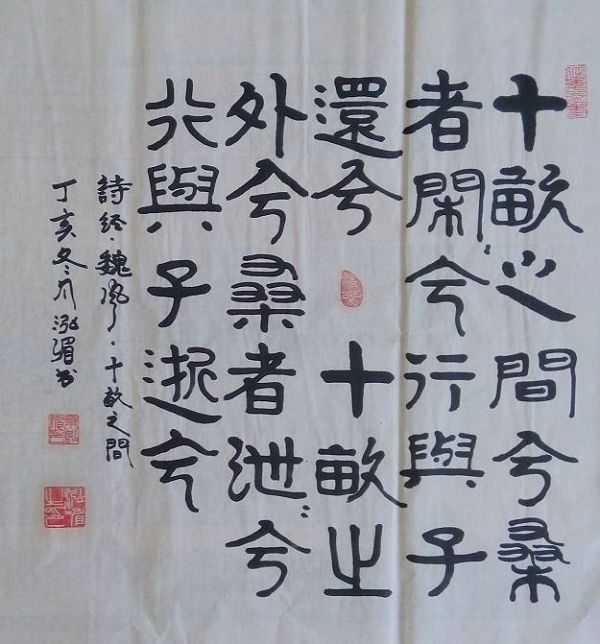 十畝之間兮桑
者閑〻兮行與子
還兮 十畝之
外兮桑者泄〻兮
行與子逝兮
詩经·魏风·十畝之間
丁亥冬月泓书